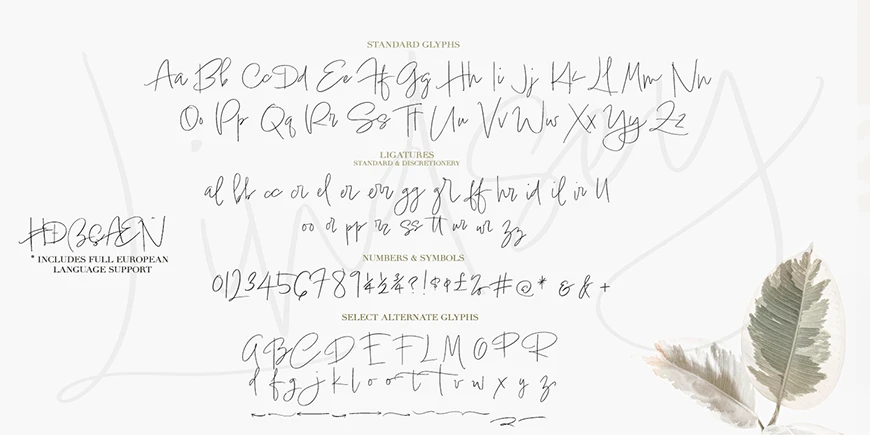 STANDARD GLYPHS
Aa Bb Cc Dd Ee Ff Gg Hh Ii Jj Kk Ll Mm Nn
Oo Pp Qq Rr Ss Tt Uu Vv Ww Xx Yy Zz
LIGATURES
STANDARD & DISCRETIONERY
al bb cc er el er err gg gr ff hr id il ir ll
oo or pp rr ss tt ur wr zz
* INCLUDES FULL EUROPEAN
LANGUAGE SUPPORT
NUMBERS & SYMBOLS
0123456789 ¼ ½ ¾ ? ! # @ * & & +
SELECT ALTERNATE GLYPHS
A B C D E F L M O P R
d f g j k l o o t t v w x y z
Lindsay